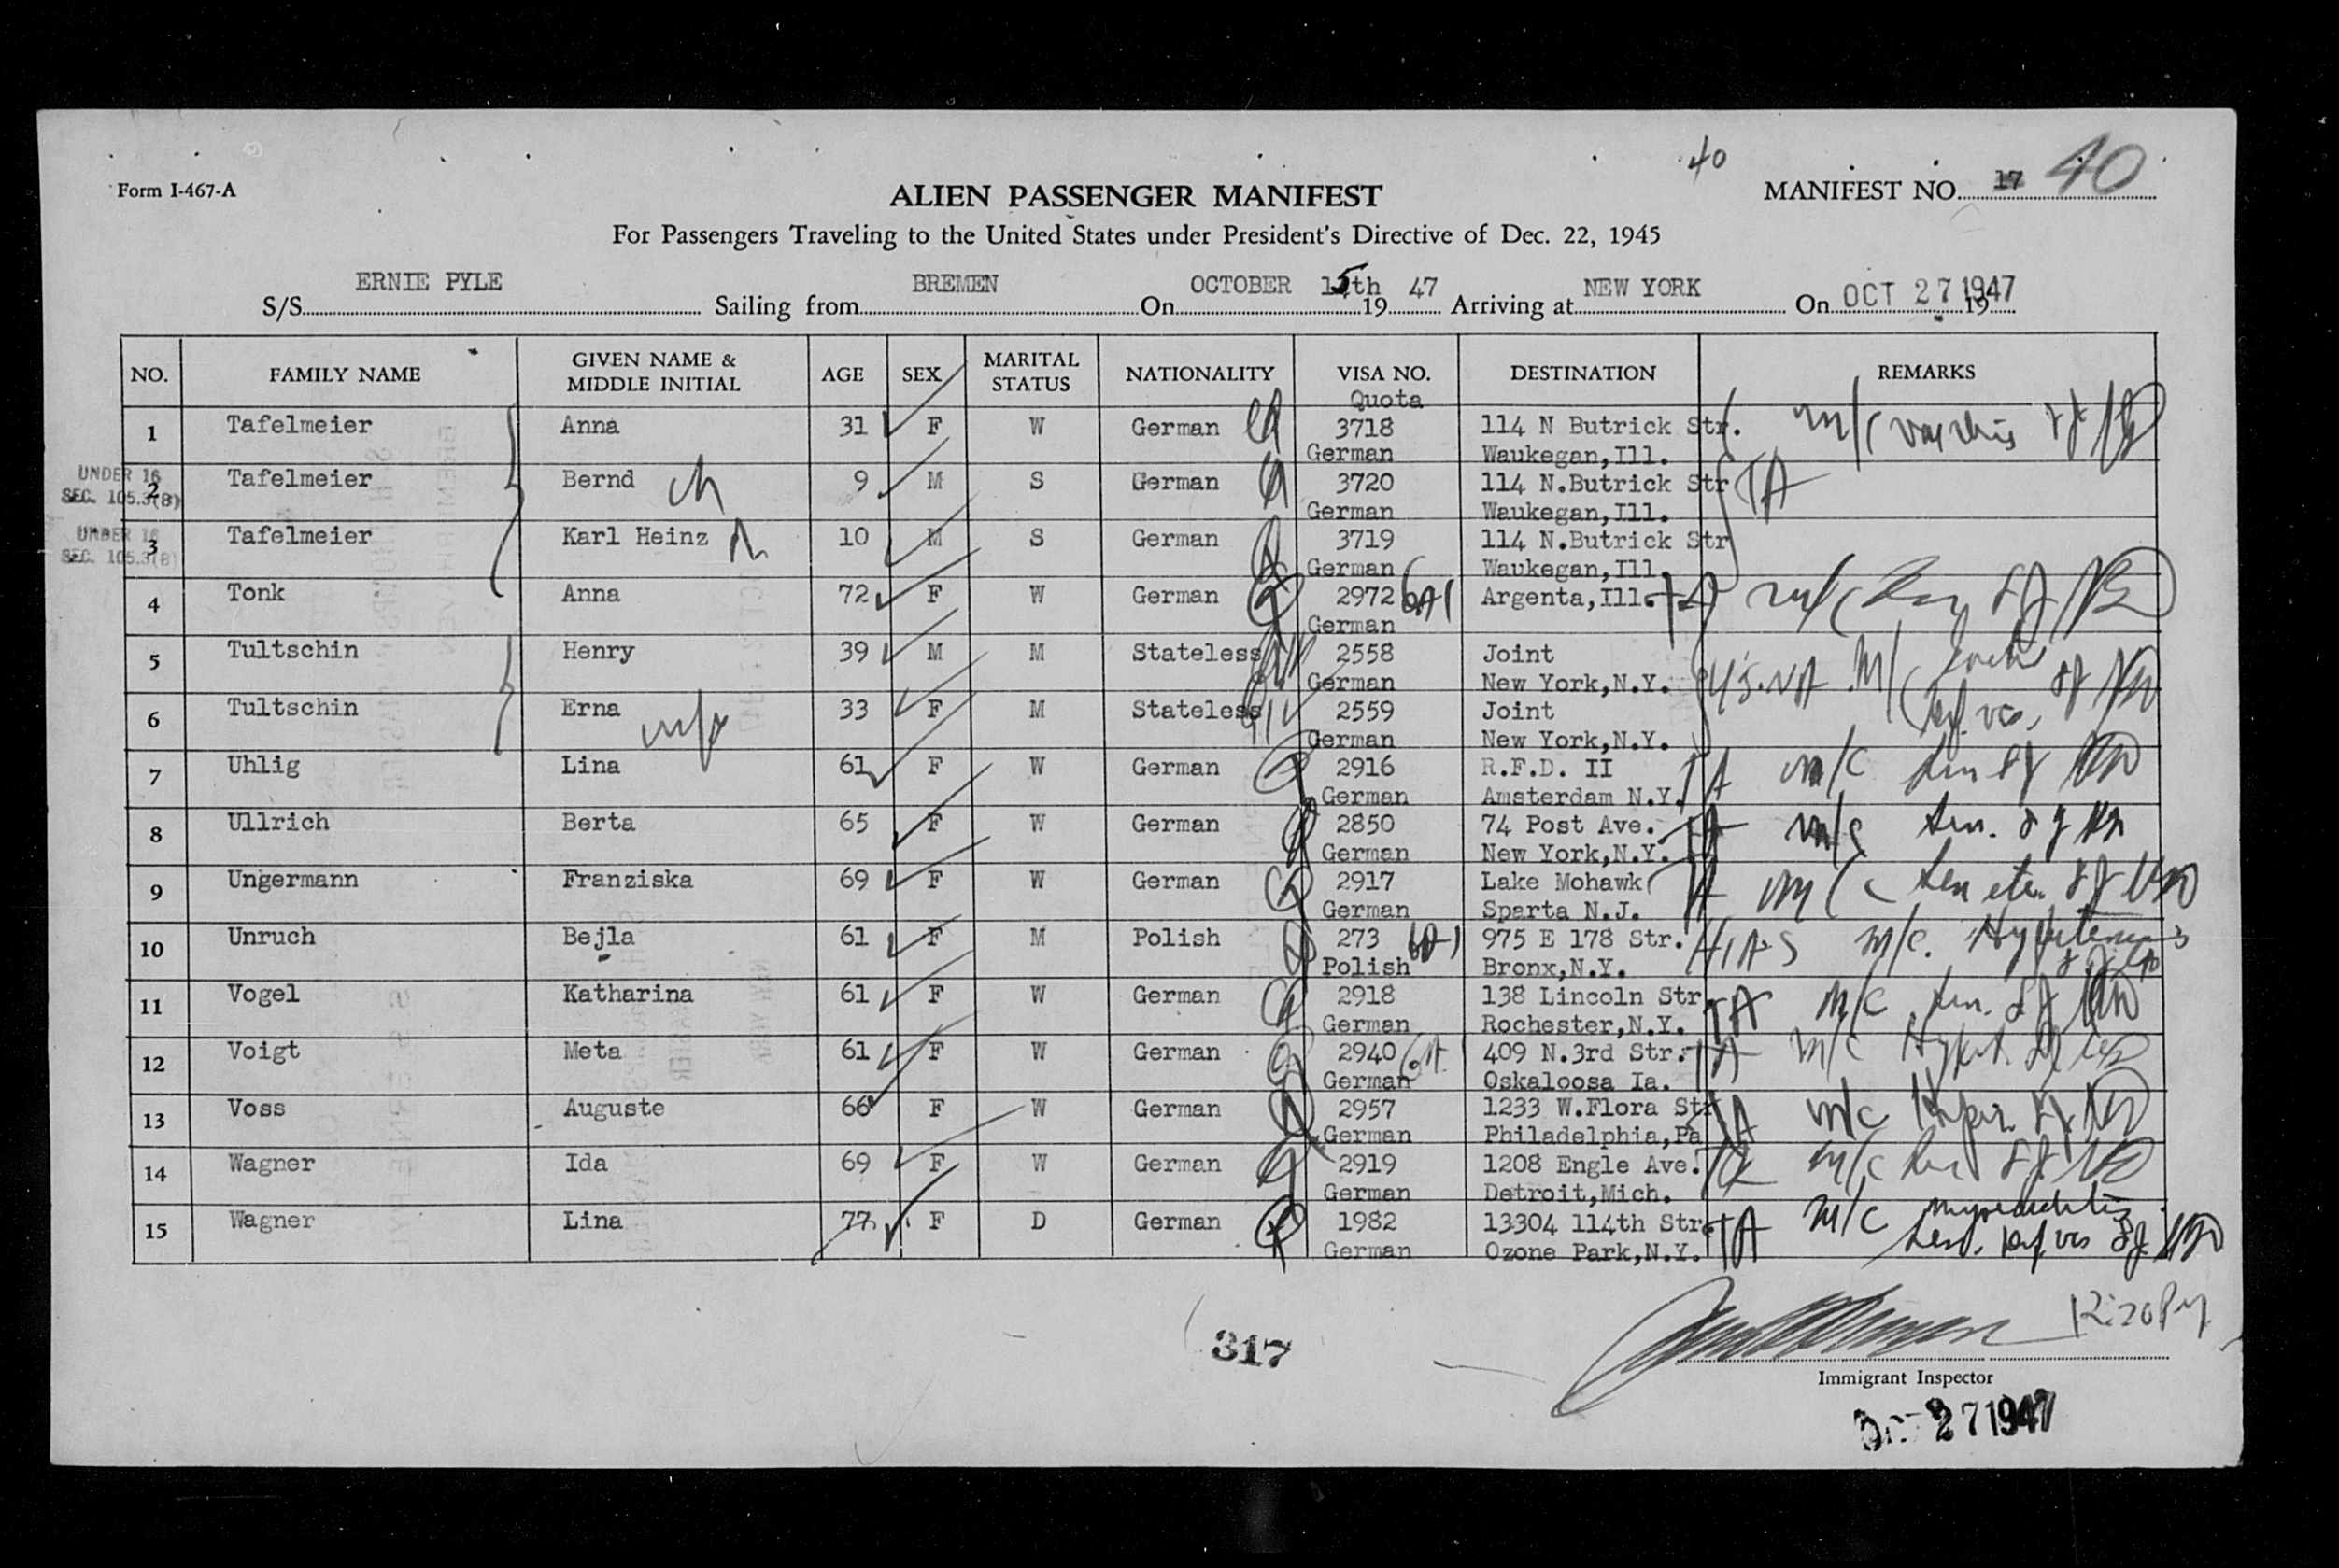 40
Form I-467-A
ALIEN PASSENGER MANIFEST
MANIFEST NO. 17 40
For Passengers Traveling to the United States under President's Directive of Dec. 22, 1945
S/S ERNIE PYLE Sailing from BREMEN On OCTOBER 15th 1947 Arriving at NEW YORK On OCT 27 1947 19
NO. FAMILY NAME GIVEN NAME & MIDDLE INITIAL AGE SEX MARITAL STATUS NATIONALITY VISA NO. DESTINATION REMARKS
Quota
1 Tafelmeier Anna 31 F W German 3718 114 N Butrick Str. m/c
German Waukegan,Ill.
UNDER 16
SEC. 105.3(B)
2 Tafelmeier Bernd ch 9 M S German 3720 114 N.Butrick Str TA
German Waukegan,Ill.
UNDER 16
SEC. 105.3(B)
3 Tafelmeier Karl Heinz 10 M S German 3719 114 N.Butrick Str
German Waukegan,Ill.
4 Tonk Anna 72 F W German 2972 Argenta,Ill. TA m/c
German
5 Tultschin Henry 39 M M Stateless 2558 Joint m/c
German New York,N.Y.
6 Tultschin Erna 33 F M Stateless 2559 Joint
German New York,N.Y.
7 Uhlig Lina 61 F W German 2916 R.F.D. II TA m/c
German Amsterdam N.Y.
8 Ullrich Berta 65 F W German 2850 74 Post Ave. TA m/c sen.
German New York,N.Y.
9 Ungermann Franziska 69 F W German 2917 Lake Mohawk TA m/c sen
German Sparta N.J.
10 Unruch Bejla 61 F M Polish 273 975 E 178 Str. HIAS m/c.
Polish Bronx,N.Y.
11 Vogel Katharina 61 F W German 2918 138 Lincoln Str TA m/c sen.
German Rochester,N.Y.
12 Voigt Meta 61 F W German 2940 409 N.3rd Str. TA m/c
German Oskaloosa Ia.
13 Voss Auguste 66 F W German 2957 1233 W.Flora Str TA m/c
German Philadelphia,Pa
14 Wagner Ida 69 F W German 2919 1208 Engle Ave. m/c
German Detroit,Mich.
15 Wagner Lina 77 F D German 1982 13304 114th Str. TA m/c
German Ozone Park,N.Y.
317
12:20 PM
Immigrant Inspector
OCT 27 1947